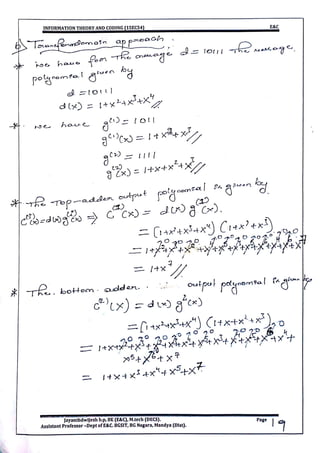 INFORMATION THEORY AND CODING (15EC54) E&C
b) Transferdomain approach.
* we have from the message d = 10111 The message
polynomial given by
d = 10111
d(x) = 1+x²+x³+x⁴
* we have g⁽¹⁾ = 1011
g⁽¹⁾(x) = 1+x²+x³//
g⁽²⁾ = 1111
g⁽²⁾(x) = 1+x+x²+x³//
* The Top-adder output polynomial is given by
C⁽¹⁾(x) = d(x) g⁽¹⁾(x) ⇒ C⁽¹⁾(x) = d(x) g⁽¹⁾(x).
= (1+x²+x³+x⁴) (1+x²+x³)
= 1+x⁷//
* The bottom adder output polynomial is given by
C⁽²⁾(x) = d(x) g²(x)
= (1+x²+x³+x⁴) (1+x+x²+x³)
x⁵+x⁶+x⁷
= 1+x+x³+x⁴+x⁵+x⁷
Jayanthdwijesh h.p, BE (E&C), M.tech (DECS). Page 19
Assistant Professor –Dept of E&C. BGSIT, BG Nagara, Mandya (Dist).